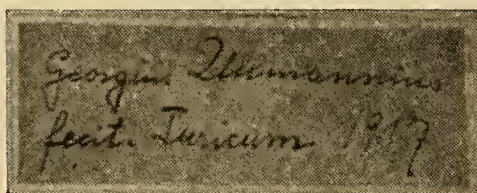 Georgius Ullmannius
fecit Turicum 1917